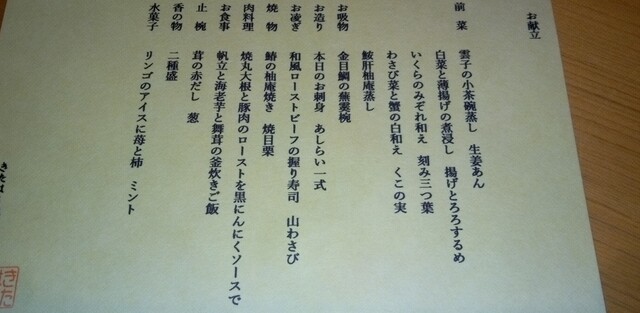 お献立
前菜 雲子の小茶碗蒸し 生姜あん
白菜と薄揚げの煮浸し 揚げとろろするめ
いくらのみぞれ和え 刻み三つ葉
わさび菜と蟹の白和え くこの実
鮟肝柚庵蒸し
お吸物 金目鯛の蕪霙椀
お造り 本日のお刺身 あしらい一式
お凌ぎ 和風ローストビーフの握り寿司 山わさび
焼物 鰆の柚庵焼き 焼目栗
肉料理 焼丸大根と豚肉のローストを黒にんにくソースで
お食事 帆立と海老芋と舞茸の釜炊きご飯
止椀 茸の赤だし 葱
香の物 二種盛
水菓子 リンゴのアイスに苺と柿 ミント